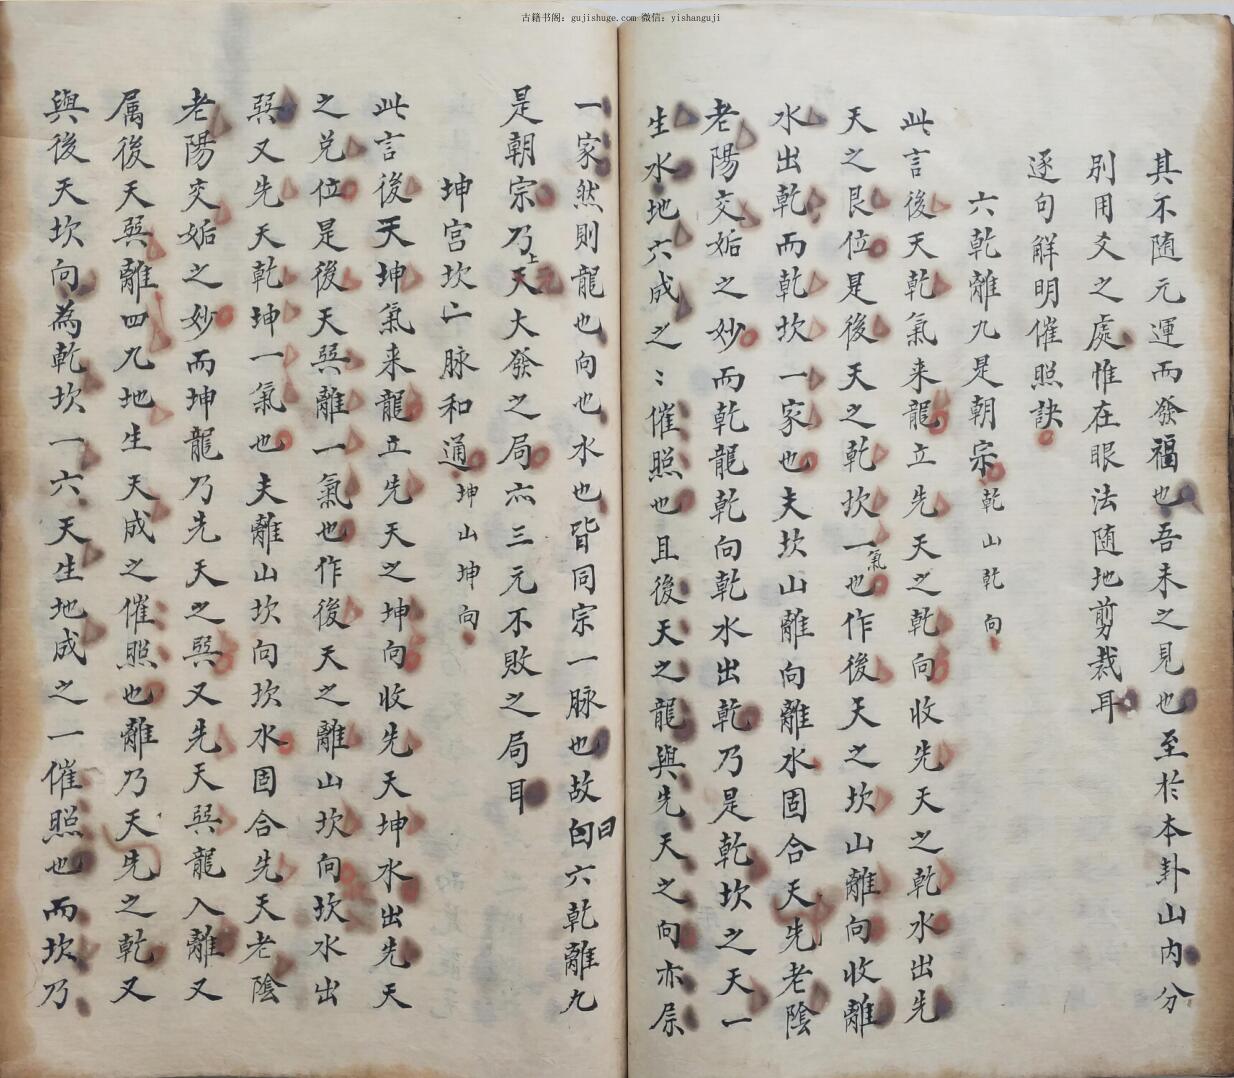 古籍书阁：gujishuge.com 微信：yishanguji
其不随元運而發福也吾未之見也至於本卦山内分
别用爻之處惟在眼法随地剪裁耳
逐句觧明催照訣
六乾離九是朝宗乾山乾向
此言後天乾氣来龍立先天之乾向收先天之乾水出先
天之艮位是後天之乾坎一氣也作後天之坎山離向收離
水出乾而乾坎一家也夫坎山離向離水固合天先老陰
老陽交姤之妙而乾龍乾向乾水出乾乃是乾坎之天一
生水地六成之〻催照也且後天之龍與先天之向亦属
一家然則龍也向也水也皆同宗一脉也故曰六乾離九
是朝宗乃上元天大發之局亦三元不敗之局耳
坤宫坎亡脉和通坤山坤向
此言後天坤氣来龍立先天之坤向收先天坤水出先天
之兑位是後天巽離一氣也作後天之離山坎向坎水出
巽又先天乾坤一氣也夫離山坎向坎水固合先天老陰
老陽交姤之妙而坤龍乃先天之巽又先天巽龍入離又
属後天巽離四九地生天成之催照也離乃天先之乾又
與後天坎向為乾坎一六天生地成之一催照也而坎乃